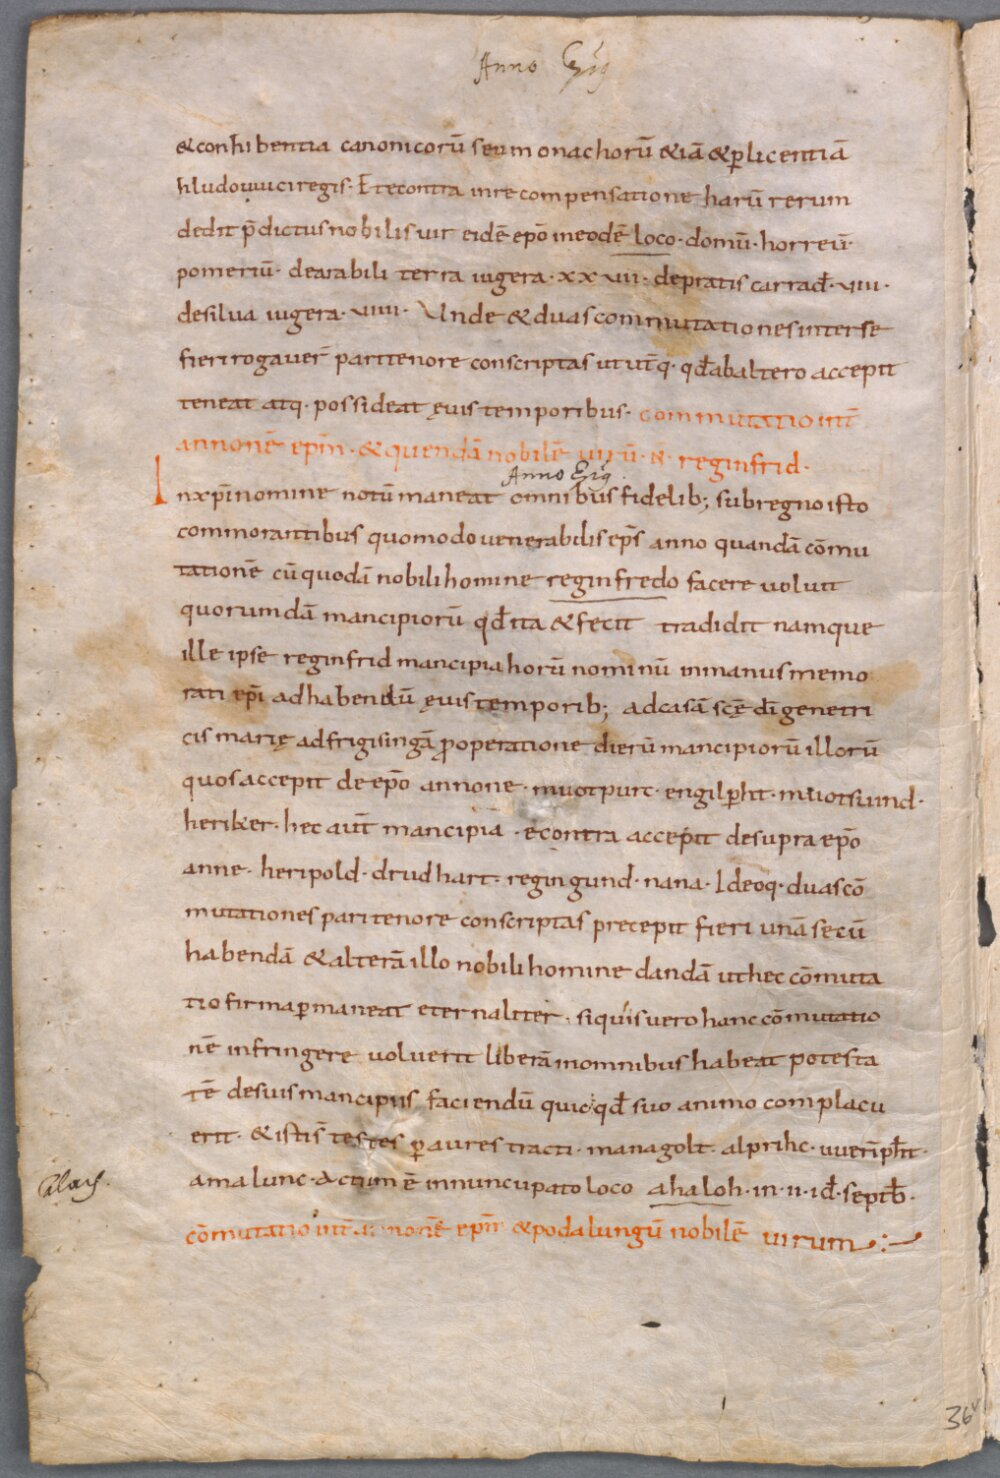 Anno Ep͂s
& conhibentia canonicorū seu monachorū &iā & ꝑlicentiā
hludouuici regis · E tecontra inrecompensatione harū rerum
dedit p̄dictus nobilis uir eidē ep̄o ineodē loco · domū · horreū ·
pomeriū · dearabili terra iugera · xx vii · depratis carrađ · viii ·
desilua iugera · viiii · Unde & duas commutationes inter se
fieri rogauer̄ pari tenore conscriptas ut ut̄q · qđ ab altero accepit
teneat atq · possideat ęuis temporibus · commutatio int̄
annonē ep̄m · & quendā nobilē uirū · N̄ · reginfrid ·
Anno Ep͂s
In xp̄i nomine notū maneat omnibus fidelib; sub regno isto
commorantibus quomodo uenerabilis ep̄s anno quandā cōmu
tationē cū quodā nobili homine reginfredo facere uoluit
quorumdā mancipiorū qđ ita & fecit tradidit namque
ille ipse reginfrid mancipia horū nominū inmanus memo
rati ep̄i ad habendū ęuis temporib; ad casā scę dī genetri
cis marię ad frigisingā ꝓ operatione dierū mancipiorū illorū
quos accepit de ep̄o annone · muotpurc · engilꝑht · muotsuind ·
heriker · hec aut̄ mancipia · econtra accepit desupra ep̄o
anne · heripold · drudhart · regingund · nana · Ideoq · duas cō
mutationes pari tenore conscriptas precepit fieri unā secū
habendā & alterā illo nobili homine dandā ut hec cōmuta
tio firma ꝑmaneat eternaliter · siquis uero hanc cōmutatio
nē infringere uoluerit liberā in omnibus habeat potesta
tē desuis mancipiis faciendū quicqđ suo animo complacu
erit · & istis testes ꝑ aures tracti · managolt · alprihc · uuerīpħt ·
amalunc · Actum ē innuncupato loco ahaloh · in · ii · iđ · septb̄ ·
cōmutatio int̄ annonē ep̄m & podalungū nobilē uirum
36v